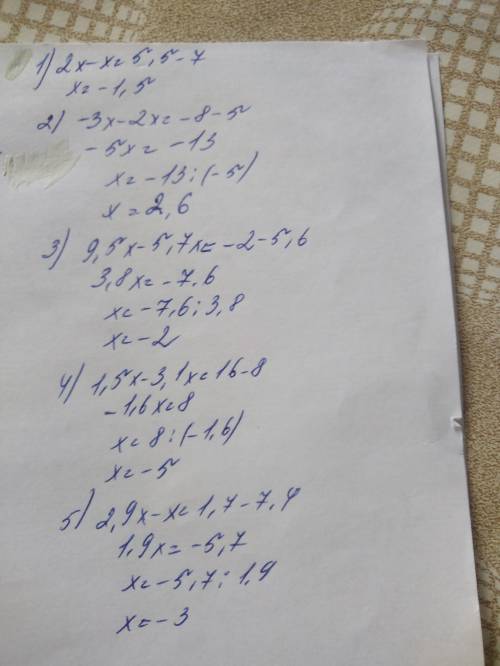 1) 2x-x=5,5-7
x=-1,5
2) -3x-2x=-8-5
-5x=-13
x=-13:(-5)
x=2,6
3) 9,5x-5,7x=-2-5,6
3,8x=-7.6
x=-7,6:3,8
x=-2
4) 1,5x-3,1x=16-8
-1,6x=8
x=8:(-1,6)
x=-5
5) 2,9x-x=1,7-7,4
1,9x=-5,7
x=-5,7:1,9
x=-3